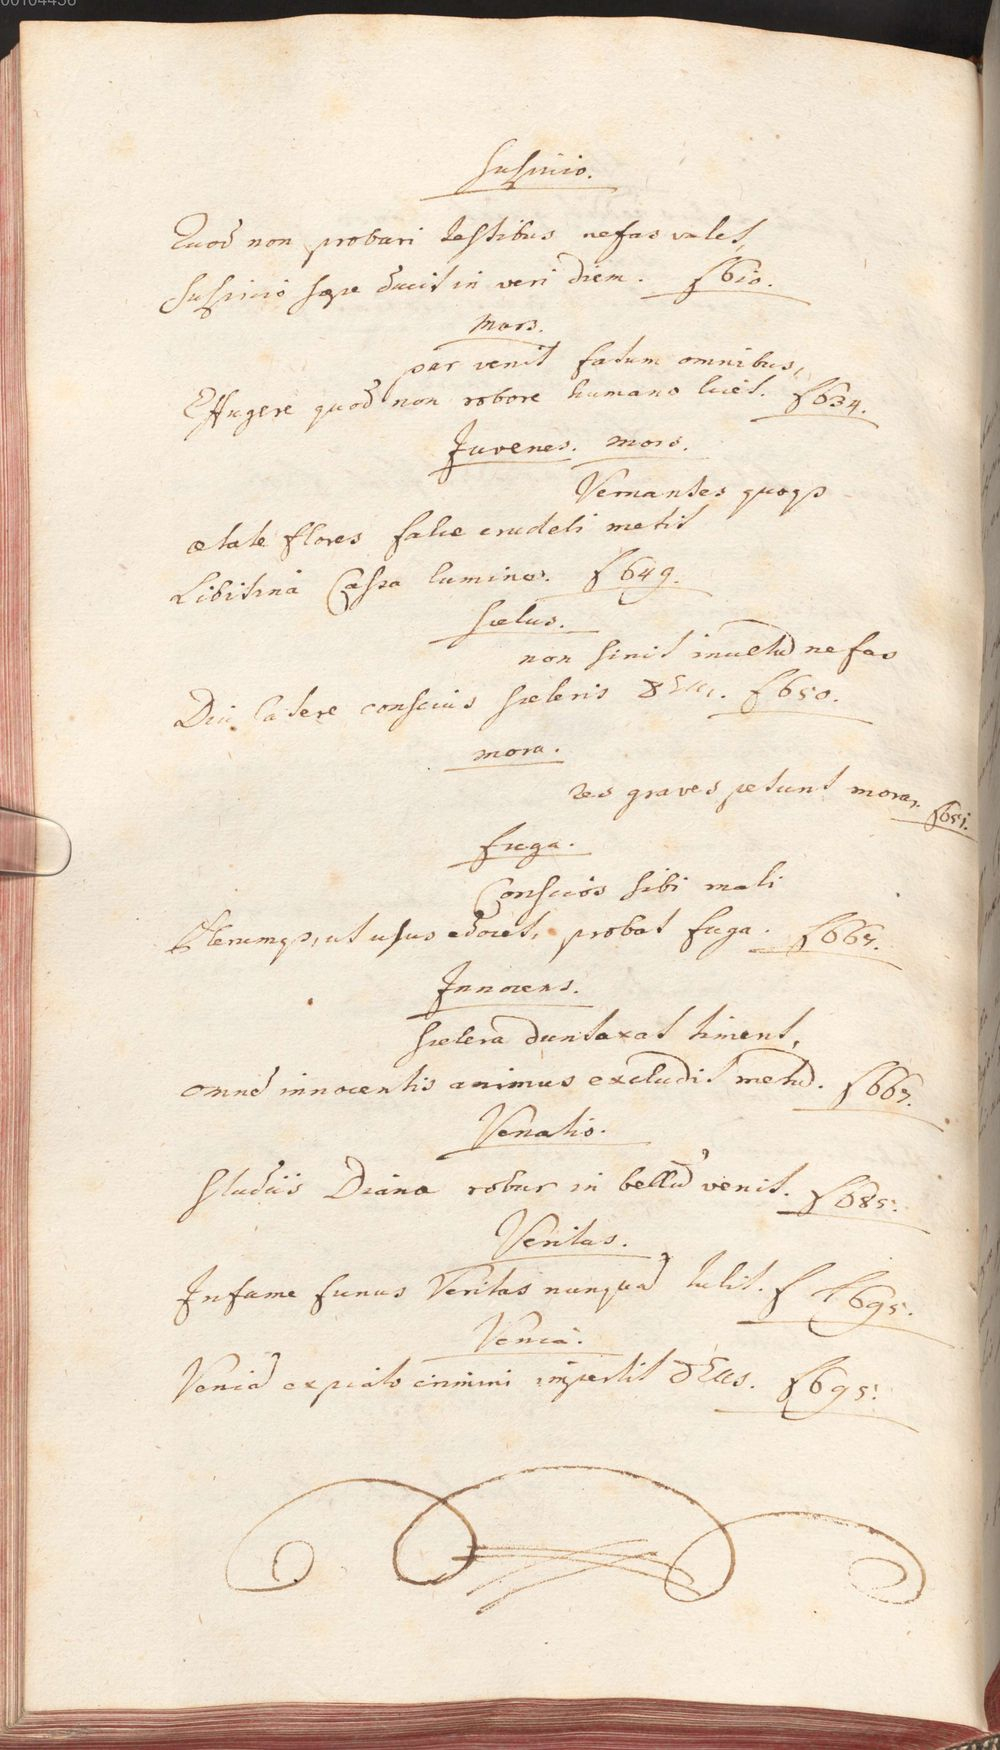 00104456
Suspicio.
Quod non probari testibus nefas valet,
Suspicio sæpe ducit in veri diem. f 610.
Mors.
par venit fatum omnibus,
Effugere quod non robore humano licet. f 634.
Juvenes. mors.
Vernantes quoqꝫ
ætate flores falce crudeli metit
Libitina Cassa luminos. f 649.
Scelus.
non sinit inultū nefas
Diu latere conscius sceleris DEus. f 650.
mora.
res graves petunt moras. f 651.
fuga.
Conscios sibi mali
Plerumqꝫ, ut usus edocet, probat fuga. f 667.
Innocens.
scelera duntaxat timent,
omnē innocentis animus excludit metū. f 667.
Venatio.
Studiis Diana robur in bellū venit. f 685.
Veritas.
Infame funus Veritas nunquā tulit. f 695.
Venia.
Veniā expiato crimini impertit DEus. f 695.